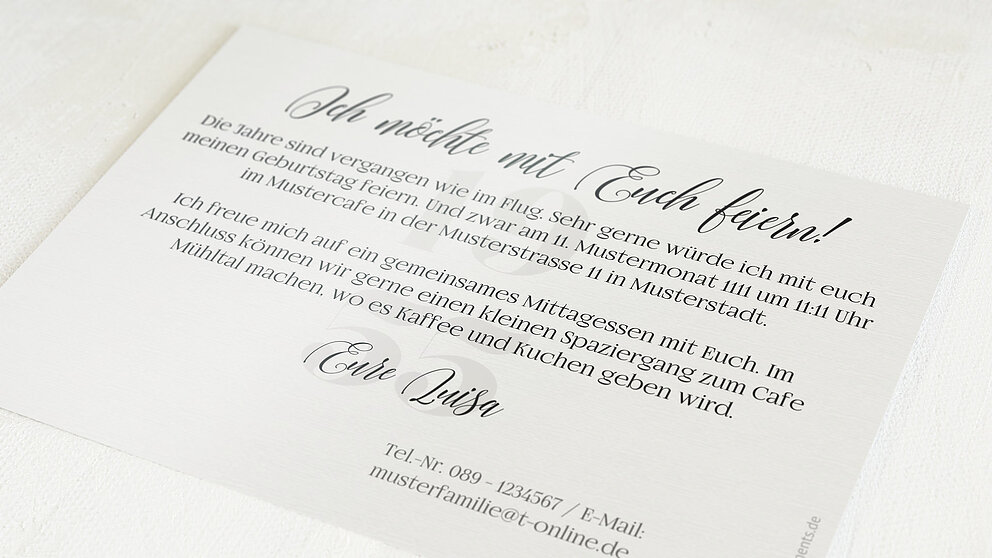 Ich möchte mit Euch feiern!
Die Jahre sind vergangen wie im Flug. Sehr gerne würde ich mit euch
meinen Geburtstag feiern. Und zwar am 11. Mustermonat 1111 um 11:11 Uhr
im Mustercafe in der Musterstrasse 11 in Musterstadt.
Ich freue mich auf ein gemeinsames Mittagessen mit Euch. Im
Anschluss können wir gerne einen kleinen Spaziergang zum Cafe
Mühltal machen, wo es Kaffee und Kuchen geben wird.
Eure Luisa
Tel.-Nr. 089 - 1234567 / E-Mail:
musterfamilie@t-online.de